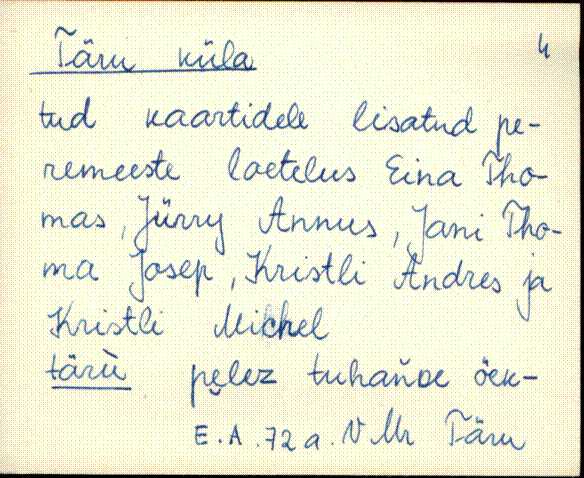 Täru küla 4
tud kaartidele lisatud pe-
remeeste loetelus Eina Tho-
mas, Jürry Annus, Jani Tho-
ma Josep, Kristli Andres ja
Kristli Michel
täru pelez tuhańDe öek-
E.A. 72 a. V Mr Täru